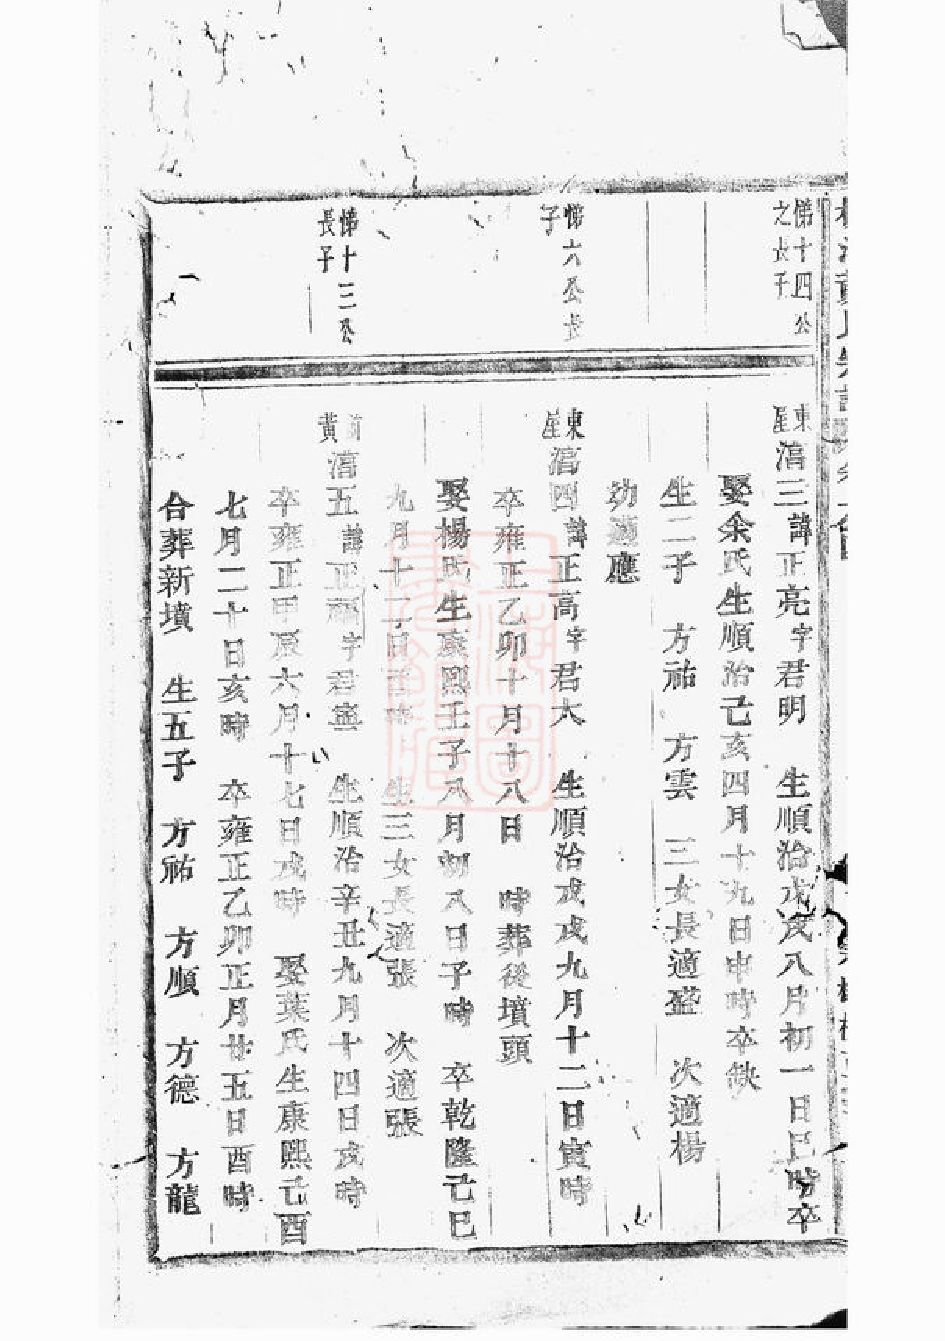 悌十四公
之長子
東
星
湻三諱正亮字君明 生順治戊戌八月初一日巳時卒
娶余氏生順治己亥四月十九日申時卒缺
生二子 方祐 方雲 三女長適盛 次適楊
幼適應
悌六公長
子
東
星
湻四諱正高字君大 生順治戊戌九月十二日寅時
卒雍正乙卯十月十八日 時葬後墳頭
娶楊氏生康熙壬子八月初八日子時 卒乾隆己巳
九月十二日 時 生三女長適張 次適張
悌十三公
長子
前
黃
湻五諱正 字君寧 生順治辛丑九月十四日亥時
卒雍正甲辰六月十七日戌時 娶葉氏生康熙己酉
七月二十日亥時 卒雍正乙卯正月廿五日酉時
合葬新墳 生五子 方祐 方順 方德 方龍